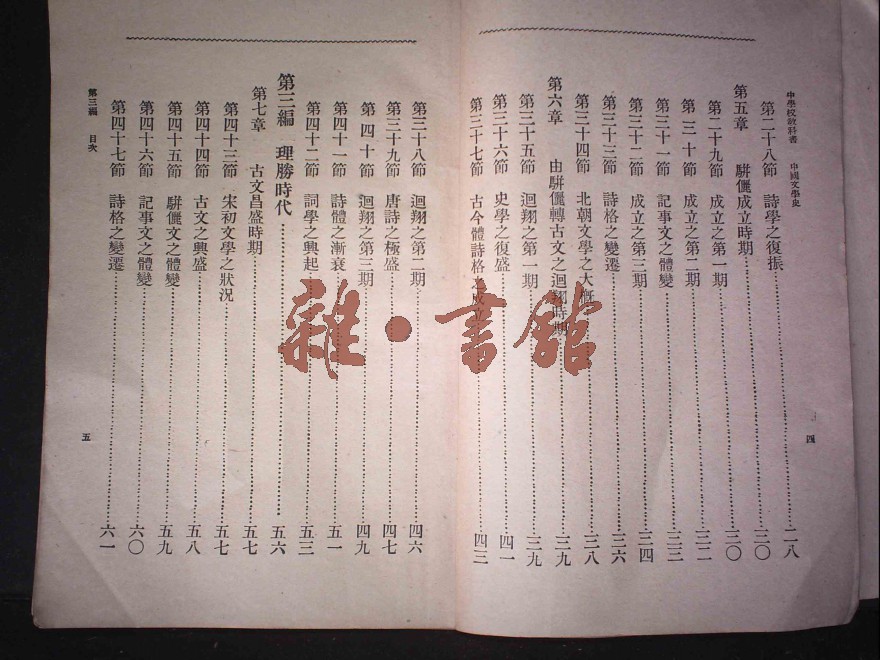 中學校教科書 中國文學史 四
第二十八節 詩學之復振……二八
第五章 駢儷成立時期……三〇
第二十九節 成立之第一期……三〇
第三十節 成立之第二期……三二
第三十一節 記事文之體變……三三
第三十二節 成立之第三期……三四
第三十三節 詩格之變遷……三六
第三十四節 北朝文學之大槪……三八
第六章 由駢儷轉古文之迴翔時期……三九
第三十五節 迴翔之第一期……三九
第三十六節 史學之復盛……四一
第三十七節 古今體詩格之成立……四三
第三十八節 迴翔之第二期……四六
第三十九節 唐詩之極盛……四七
第四十節 迴翔之第三期……四九
第四十一節 詩體之漸衰……五一
第四十二節 詞學之興起……五三
第三編 理勝時代……五六
第七章 古文昌盛時期……五七
第四十三節 宋初文學之狀況……五七
第四十四節 古文之興盛……五八
第四十五節 駢儷文之體變……五九
第四十六節 記事文之體變……六〇
第四十七節 詩格之變遷……六一
第三編 目次 五
雜·書館